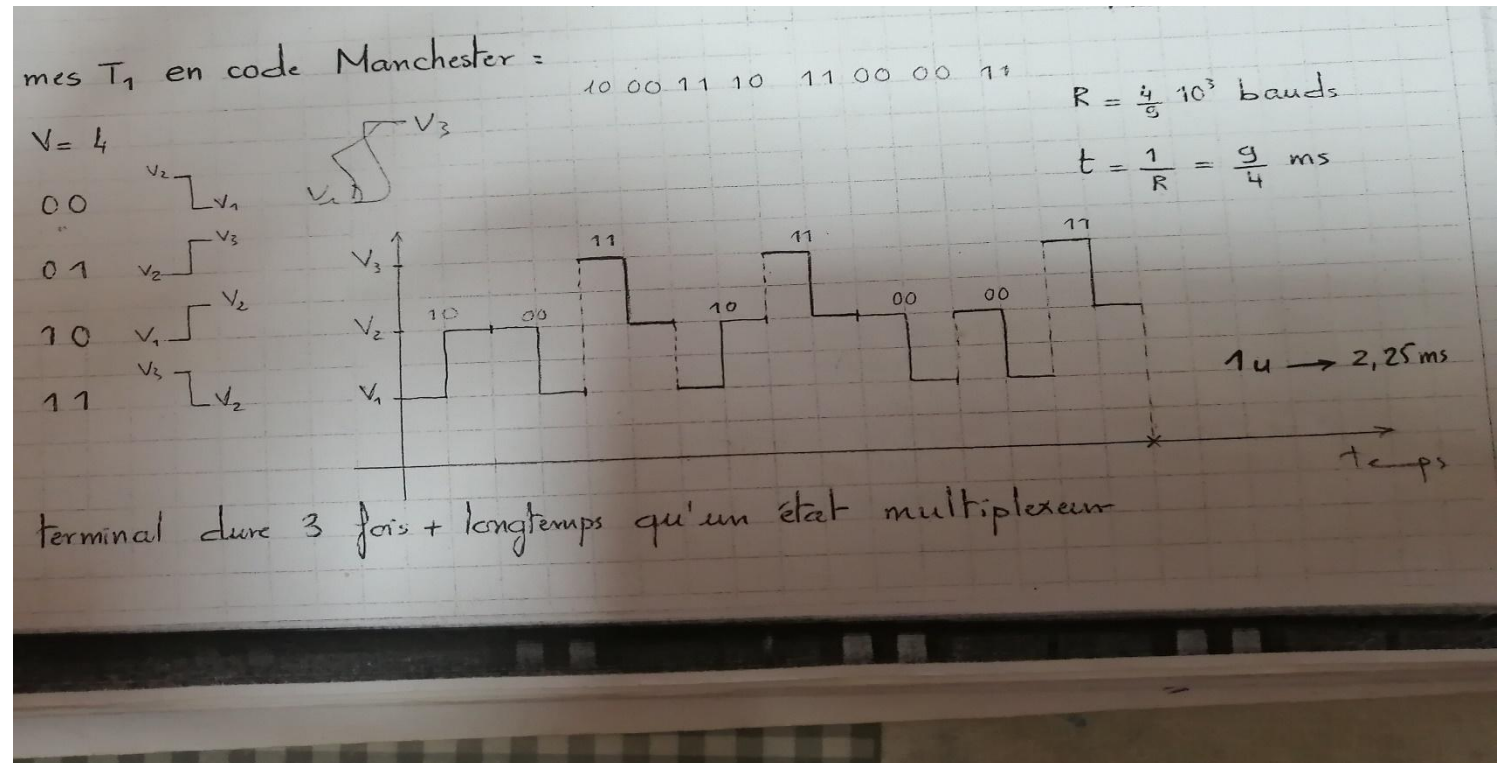 mes T1 en code Manchester =
10 00 11 10 11 00 00 11
R = 4/9 10³ bauds
V = 4
t = 1/R = 9/4 ms
V3
00 V2 V1
01 V2 V3
10 V1 V2
11 V3 V2
V3
V2
V1
10 00 11 10 11 00 00 11
1u → 2,25 ms
temps
terminal dure 3 fois + longtemps qu'un état multiplexeur